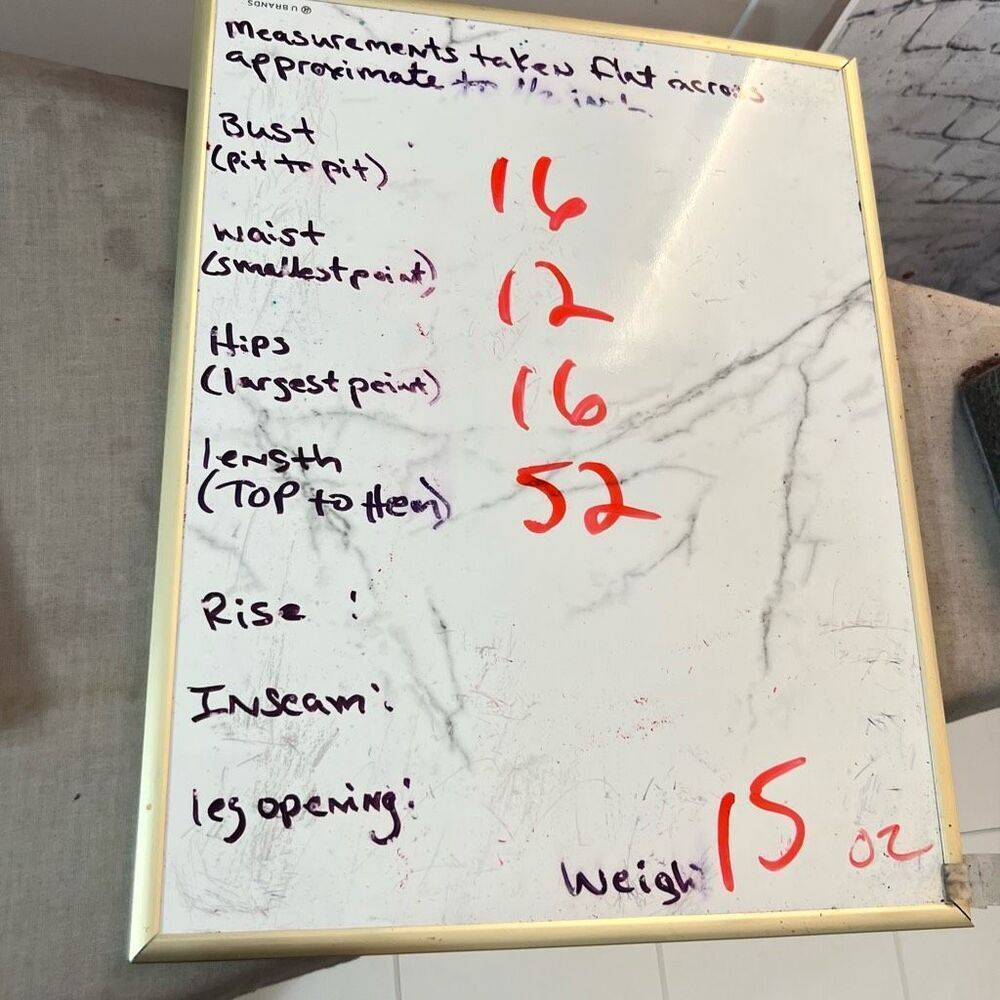 U BRANDS
Measurements taken flat across
approximate to the inch.
Bust
(pit to pit) 16
waist
(smallest point) 12
Hips
(largest point) 16
length
(TOP to Hem) 52
Rise :
INSeam:
leg opening:
Weigh 15 oz